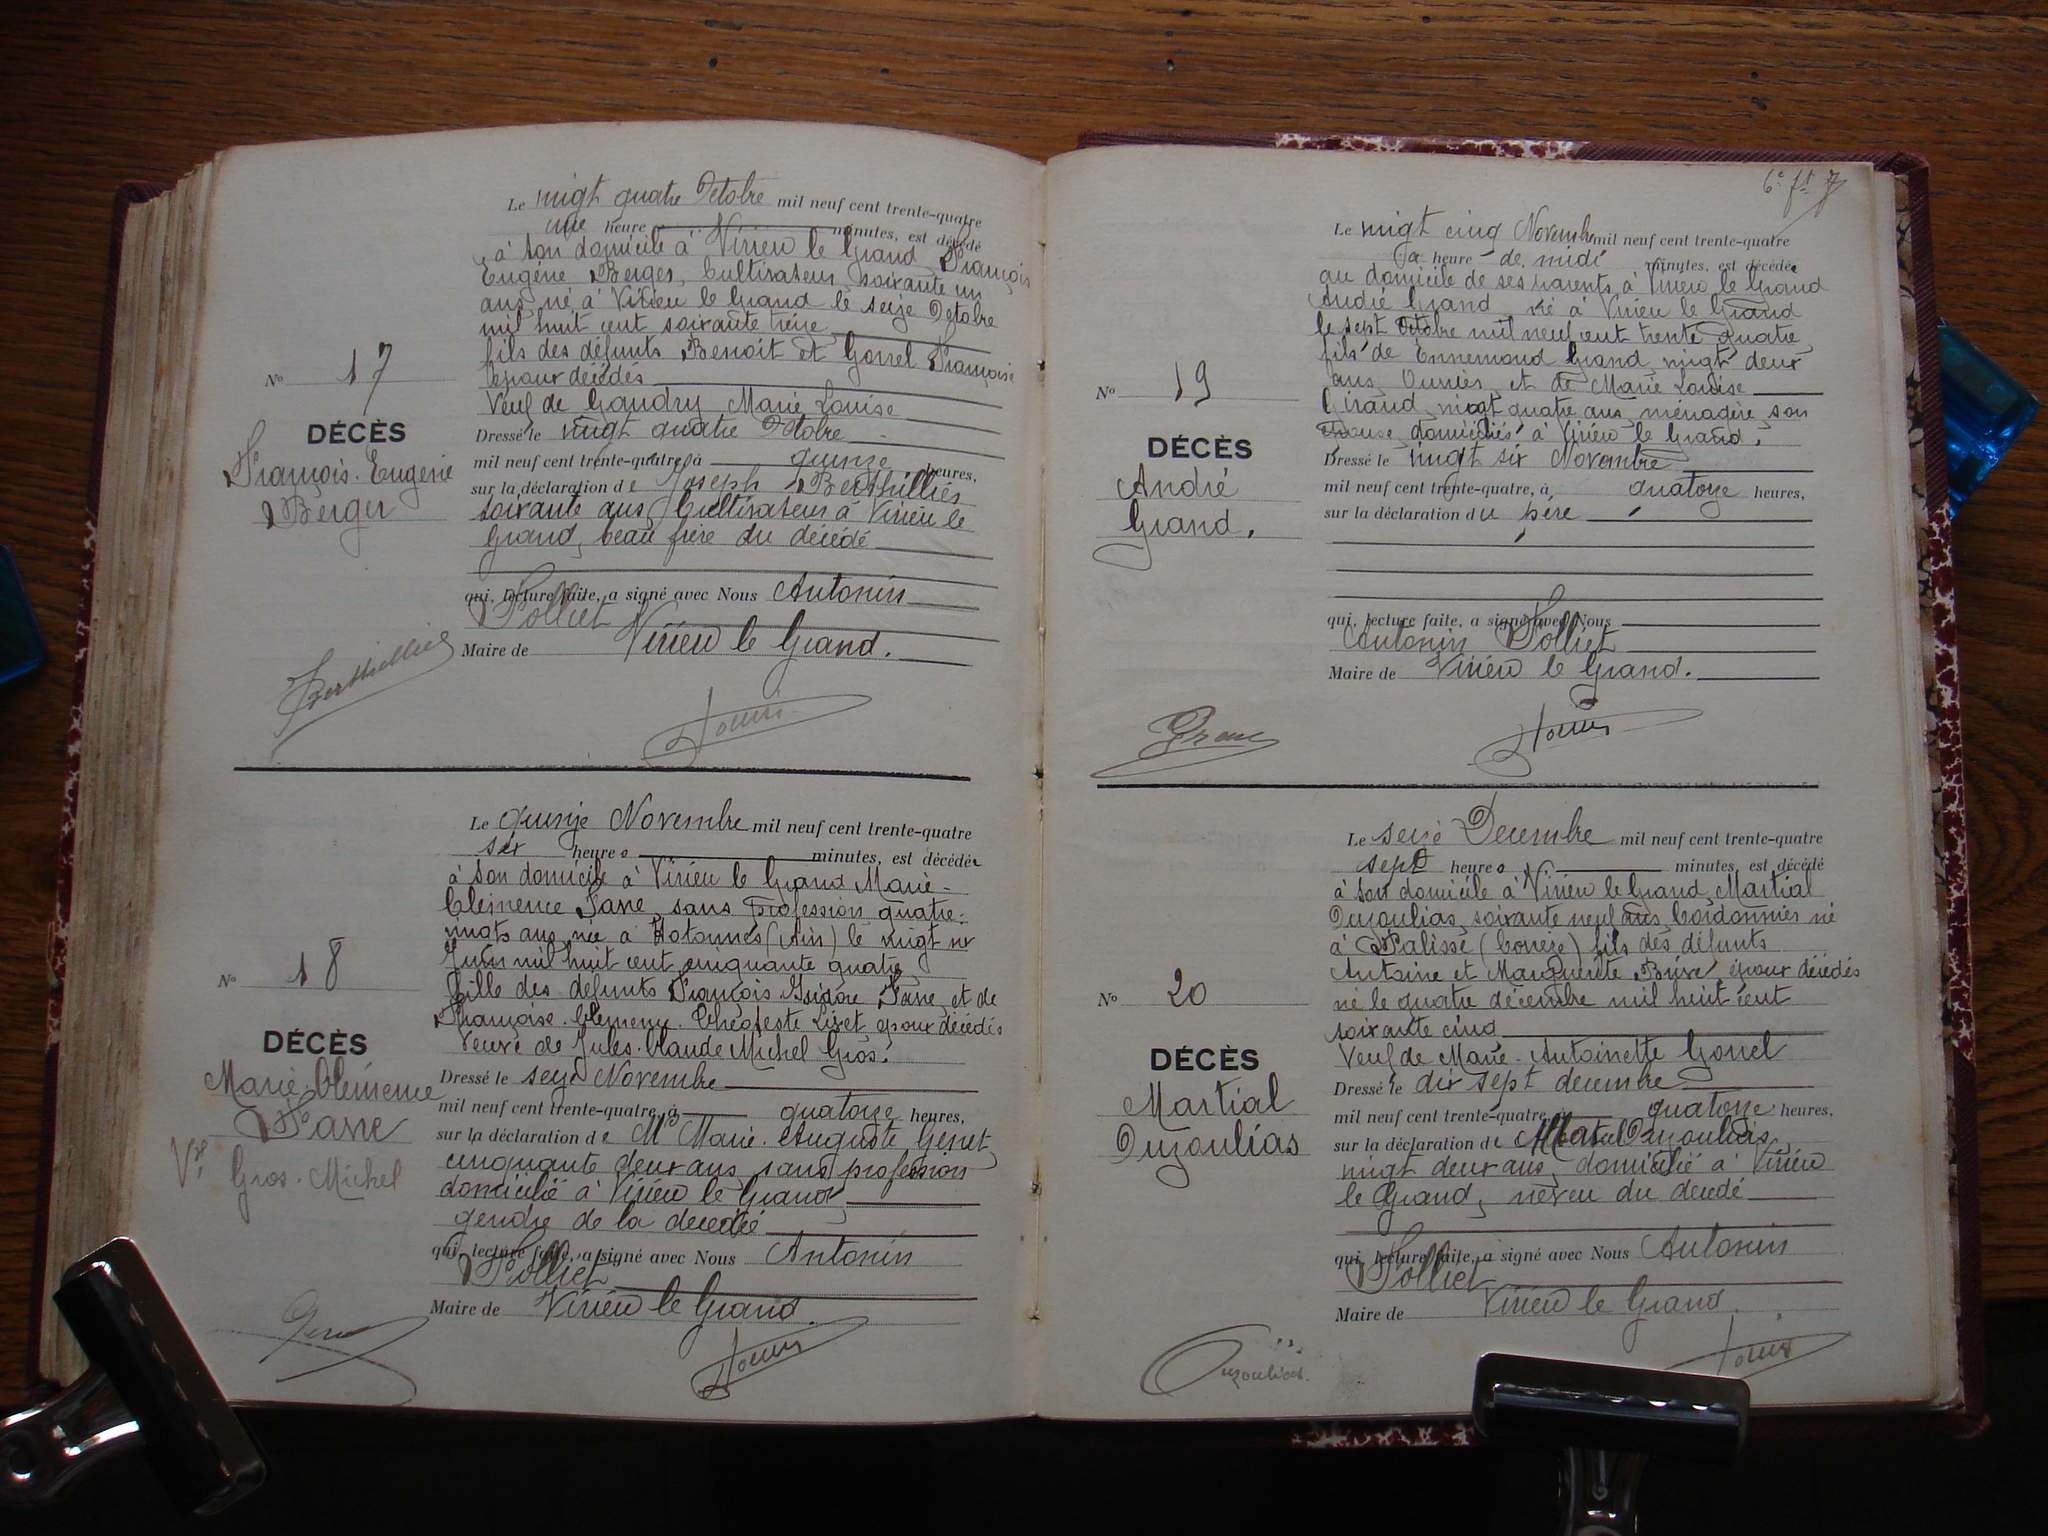 Le vingt quatre Octobre mil neuf cent trente-quatre
une heure minutes, est décédé
à son domicile à Virieu le Grand François
Eugène Berger, Cultivateur, soixante un
ans, né à Virieu le Grand le seize Octobre
mil huit cent soixante treize
fils des défunts Benoit et Gonnel Françoise
époux décédés
Veuf de Gaudry Marie Louise
Dressé le vingt quatre Octobre
mil neuf cent trente-quatre, à quinze heures,
sur la déclaration de Joseph Berthillier
soixante ans, Cultivateur à Virieu le
Grand, beau frère du décédé
qui, lecture faite, a signé avec Nous Antonin
Polliet
Maire de Virieu le Grand.
No 17
DÉCÈS
François-Eugène
Berger
Berthillier
Le quinze Novembre mil neuf cent trente-quatre
six heures minutes, est décédée
à son domicile à Virieu le Grand Marie-
Clémence sans profession, quatre-
vingts ans, née à Hotonnes (Ain) le vingt
Juin mil huit cent cinquante quatre
fille des défunts François Isidore et de
Françoise. Clémence. Lizet époux décédés
Veuve de Jules-Claude Michel Gros.
Dressé le seize Novembre
mil neuf cent trente-quatre, à quatorze heures,
sur la déclaration de Mr Marie-Auguste Genet,
cinquante deux ans, sans profession
domicilié à Virieu le Grand,
gendre de la décédée
qui, lecture faite, a signé avec Nous Antonin
Polliet
Maire de Virieu le Grand.
No 18
DÉCÈS
Marie-Clémence
Vve
Gros-Michel
6e ft
Le vingt cinq Novembre mil neuf cent trente-quatre
heure de midi minutes, est décédé
au domicile de ses parents, à Virieu le Grand
André Grand né à Virieu le Grand
le sept Octobre mil neuf cent trente quatre,
fils de Ennemond Grand, vingt deux
ans, Ouvrier, et de Marie Louise
Giraud, vingt quatre ans, ménagère, son
épouse, domiciliés à Virieu le Grand.
Dressé le vingt six Novembre
mil neuf cent trente-quatre, à quatorze heures,
sur la déclaration du père
qui, lecture faite, a signé avec Nous
Antonin Polliet
Maire de Virieu le Grand.
No 19
DÉCÈS
André
Grand.
Le seize Decembre mil neuf cent trente-quatre
sept heures minutes, est décédé
à son domicile à Virieu le Grand, Martial
Ouzoulias, soixante neuf ans, Cordonnier né
à Palisse (Corrèze) fils des défunts
Antoine et Marguerite époux décédés
né le quatre décembre mil huit cent
soixante cinq
Veuf de Marie-Antoinette Gonnel
Dressé le dix sept decembre
mil neuf cent trente-quatre, à quatorze heures,
sur la déclaration de Ouzoulias,
vingt deux ans, domicilié à Virieu
le Grand, neveu du décédé
qui, lecture faite, a signé avec Nous Antonin
Polliet
Maire de Virieu le Grand.
No 20
DÉCÈS
Martial
Ouzoulias
Ouzoulias.